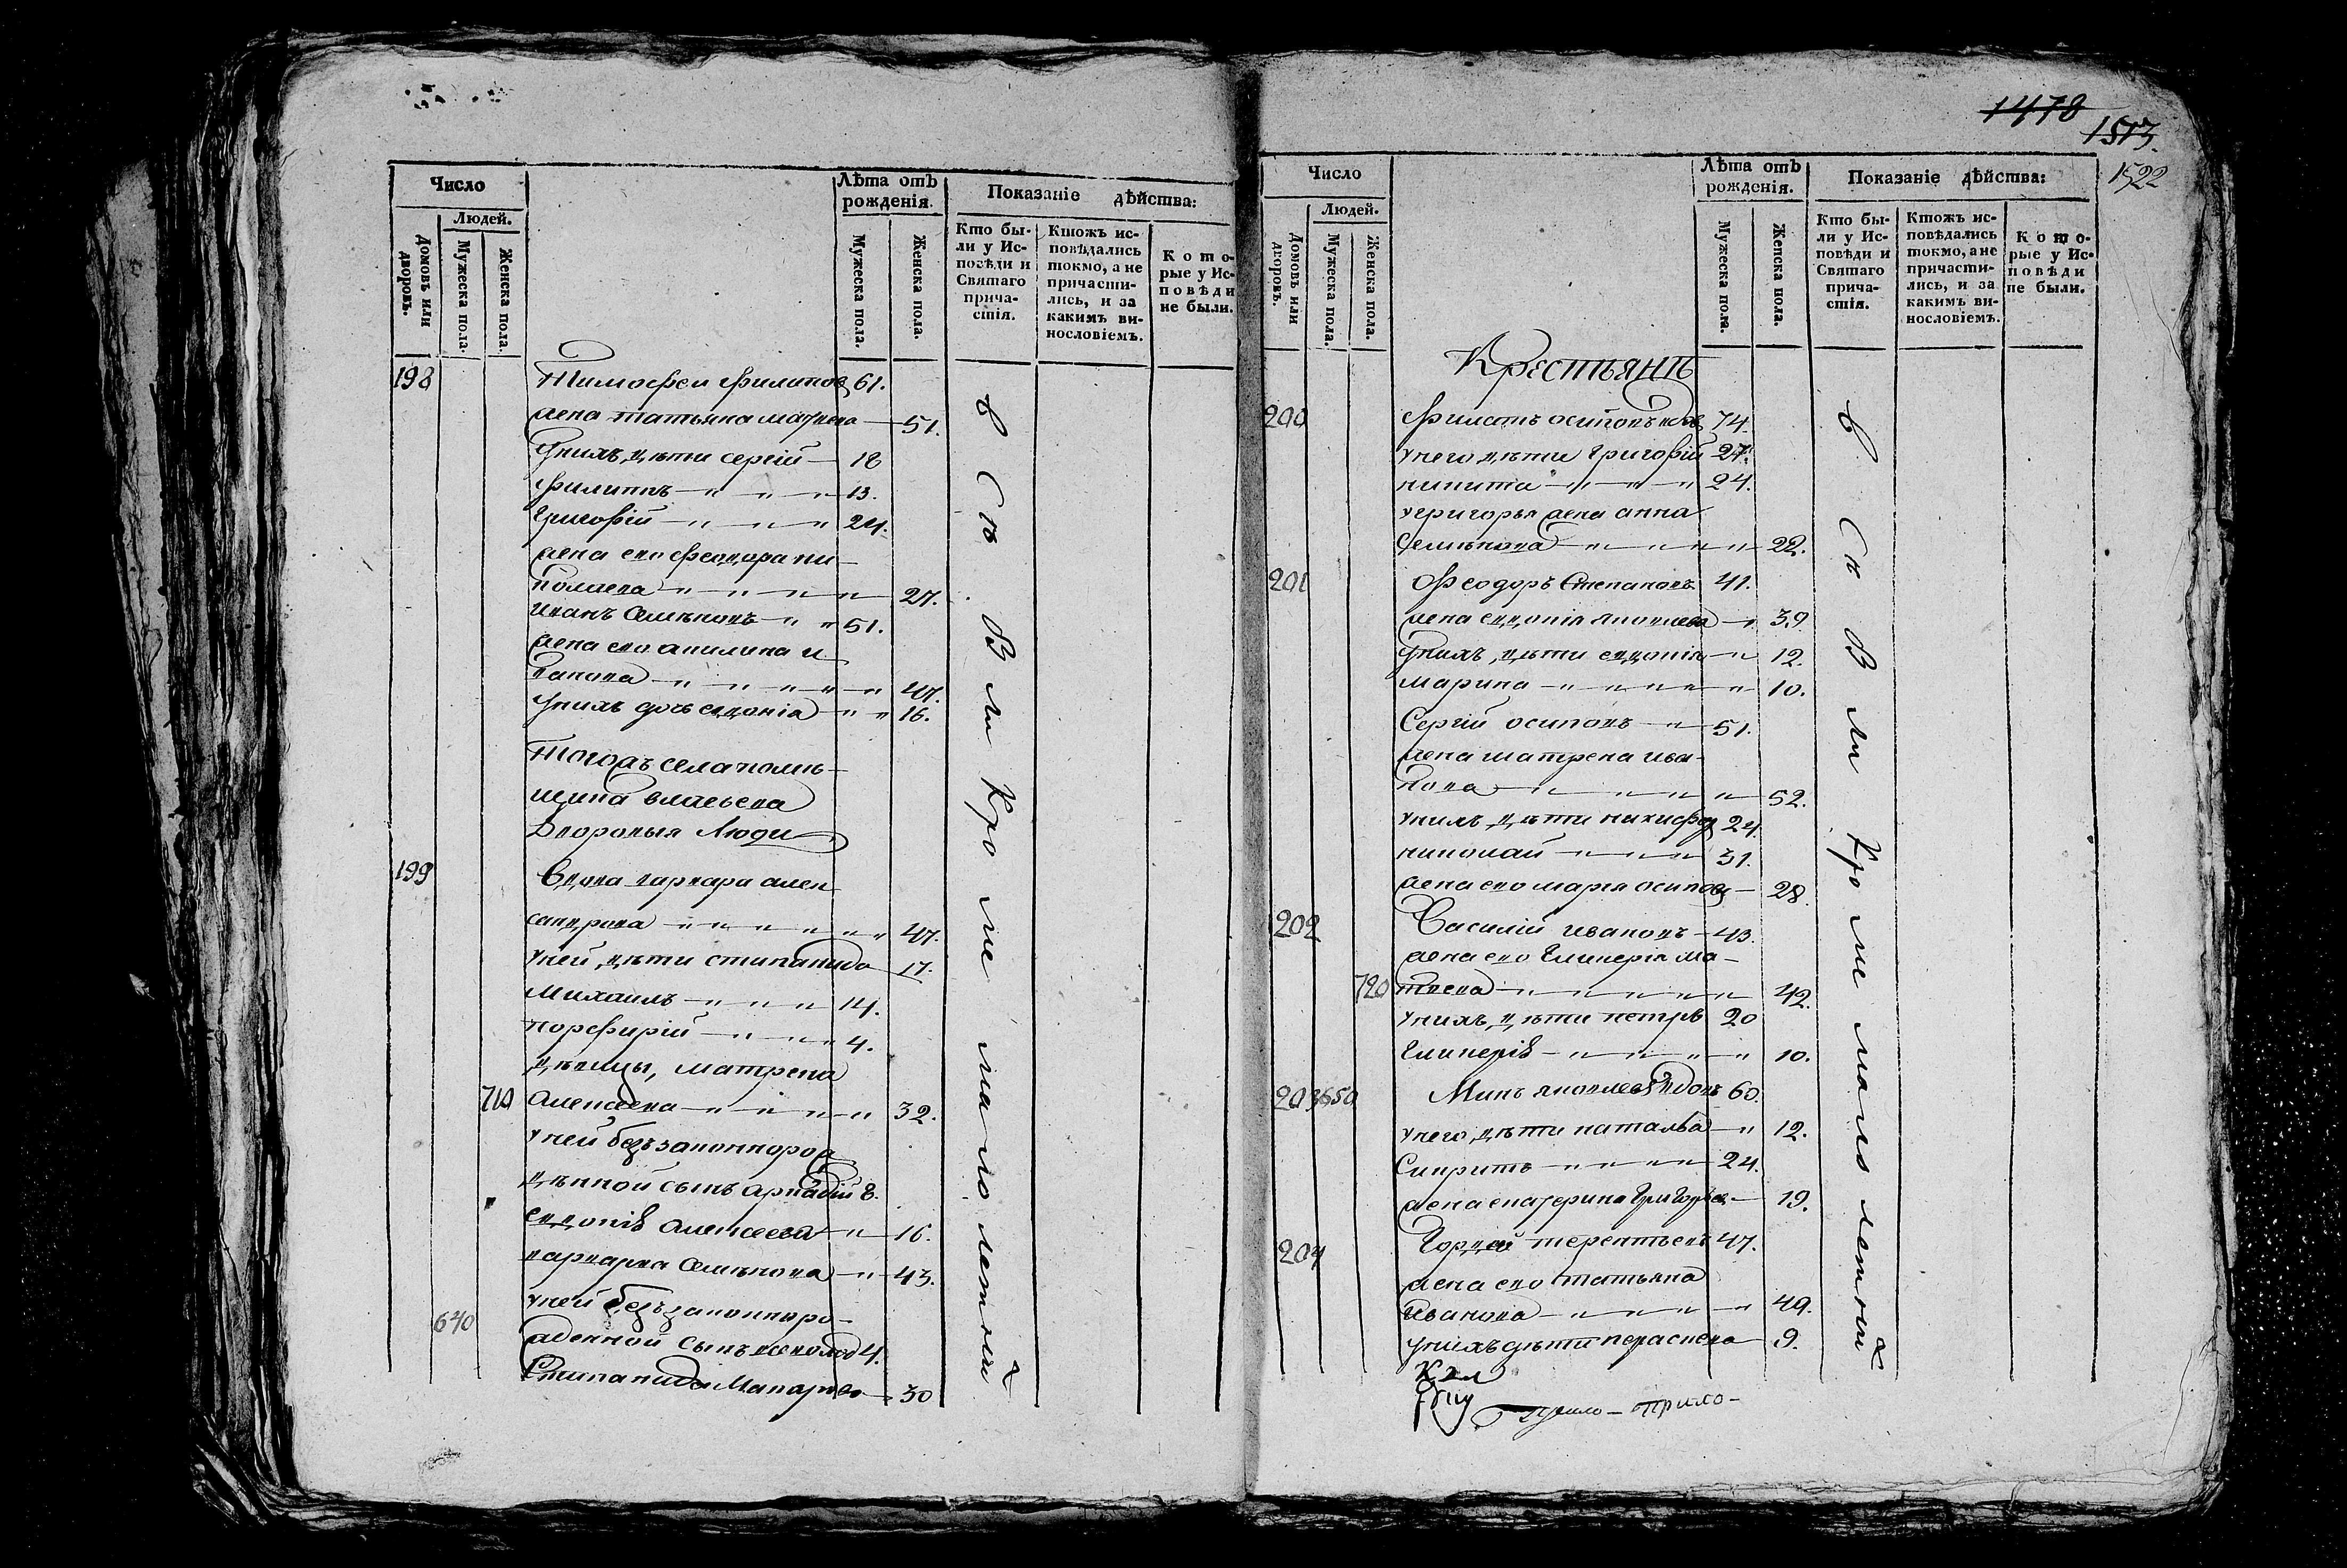 Число
Людей.
Домовъ или дворовъ.
Мужеска пола.
Женска пола.
Лѣта отъ рожденія.
Мужеска пола.
Женска пола.
Показаніе дѣйства:
Кто бы-
ли у Ис-
повѣди и
Святаго
прича-
стія.
Ктожъ ис-
повѣдались
токмо, а не
причасти-
лись, и за
какимъ ви-
нословіемъ.
Кото-
рые у Ис-
повѣди
не были.
198 Тимофеи Филипов 61.
жена татьяна 51.
Унихъ дѣти сергій 18
Филиппъ 13.
Григорій 24.
жена его Феодора ни-
колаева 27.
Иванъ Семѣновъ 51.
жена его акилина и
ванова 47.
Унихъ дочь евдокія 16.
Тогожъ села помѣ-
щика
Дворовыя Люди
199 Вдова варвара алек
сандрова 47.
Уней дѣти стипанида 17.
Михаилъ 14.
порфирій 4.
дѣвицы, матрена
710 Алексеева 32.
Уней безъзаконнорож
дѣнной сынъ аркадій 8.
евдокія Алексеева 16.
варвара Семѣнова 43.
Уней безъзаконноро-
640 жденной сынъ всеволод 4.
Стипанида Макарова 30
Всѣ были кромѣ малолетныхъ
1478
1513.
1522
Число
Людей.
Домовъ или дворовъ.
Мужеска пола.
Женска пола.
Лѣта отъ
рожденія.
Мужеска пола.
Женска пола.
Показаніе дѣйства:
Кто бы-
ли у Ис-
повѣди и
Святаго
прича-
стія.
Ктожъ ис-
повѣдались
токмо, а не
причасти-
лись, и за
какимъ ви-
нословіемъ.
Кото-
рые у Ис-
повѣди
не были.
Крестьянѣ
200 Филатъ осиповъ 74.
Унего дѣти Григорій 27.
никита 24.
Угригорья жена анна
Семѣнова 22.
201 Феодоръ Степановъ 41.
жена евдокія яковлева 39
Унихъ дѣти евдокія 12.
Марина 10.
Сергій осиповъ 51.
жена матрена ива-
нова 52.
Унихъ дѣти никифор 24.
николай 31.
жена его марія осипова 28.
202 Василій Ивановъ 43.
жена его Гликерія ма-
720 твеева 42.
Унихъ дѣти петръ 20
Гликерія 10.
203 650 Минъ яковлевъ вдовъ 60.
Унего дѣти наталья 12.
Спиритъ 24.
жена екатерина Григорьева 19.
204 Гордей терентьевъ 47.
жена его татьяна
Иванова 49.
Унихъ дѣти параскева 9.
Всѣ были кромѣ малолетныхъ